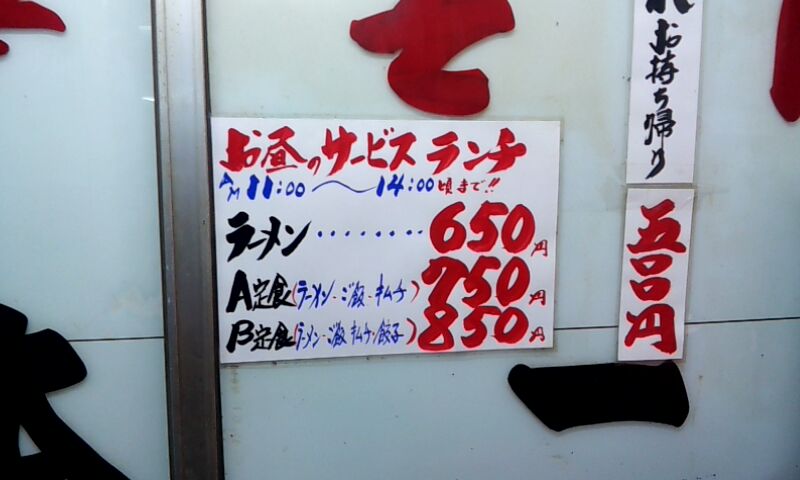 お昼のサービスランチ
AM 11:00〜14:00頃まで!!
ラーメン・・・・・・・・650円
A定食(ラーメン・ご飯・キムチ)750円
B定食(ラーメン・ご飯・キムチ・餃子)850円
お持ち帰り
五〇〇円